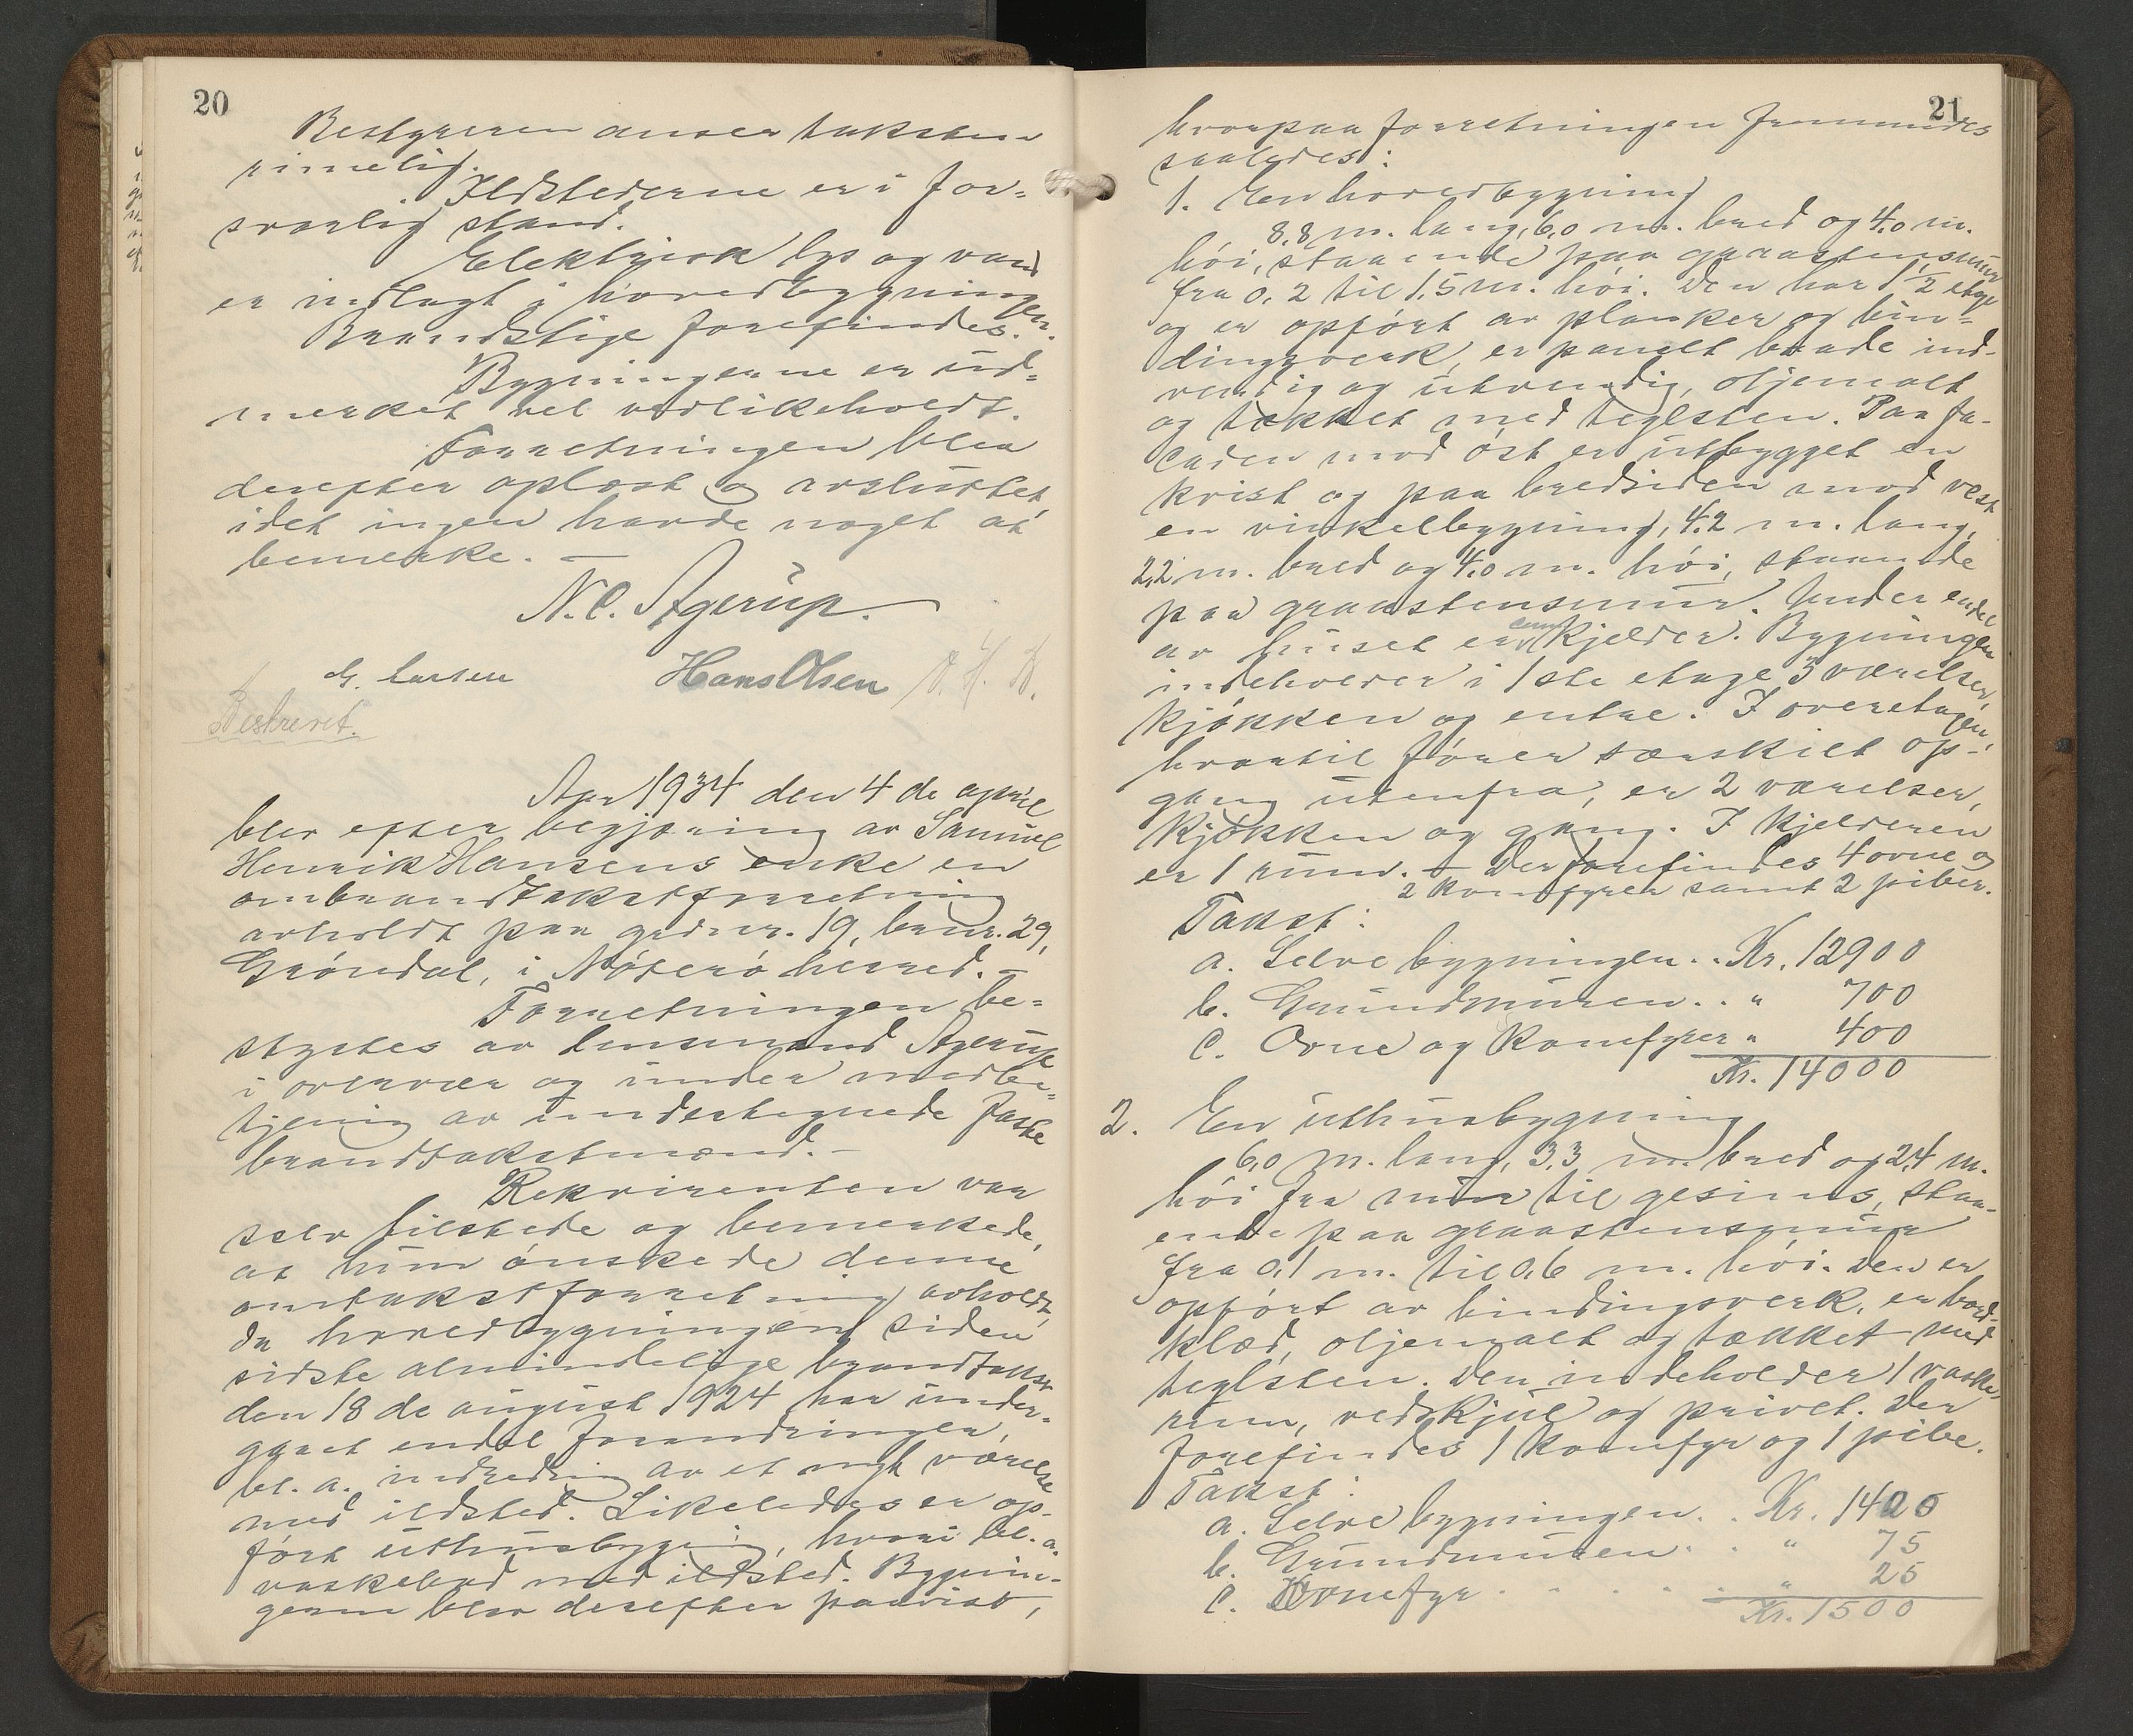 20
Bestyreren anser taksten
rimelig.
Ildstederne er i for-
svarlig stand.
Elektrisk lys og vand
er indlagt i hovedbygningen.
Brandstige forefindes.
Bygningerne er ud-
merket vel vedlikeholdt.
Forretningen blev
derefter oplæst og avsluttet
idet ingen havde noget at
bemerke. —
N. C. Agerup.
G. Larsen Hans Olsen
Beskrevet.
Aar 1934 den 4 de april
blev efter begjæring av Samuel
Henrik Hansens enke en
ombrandtakstforretning
avholdt paa grdnr. 19, brnr. 29,
Gröndal, i Nöterö herred. —
Forretningen be-
styrtes av lensmand Agerup
i overvær og under medbe-
tjening av undertegnede faste
brandtakstmænd. —
Rekvirenten var
selv tilstede og bemerkede,
at hun ønskede denne
omtakstforretning avholdt,
da hovedbygningen siden
sidste almindelige brandtakst
den 18 de august 1924 har under-
gaaet endel forandringer,
bl. a. indredning av et nyt værelse
med ildsted. Likeledes er op-
ført uthusbygning, hvori bl. a.
vaskekjeld med ildsted. Bygnin-
gerne blev derefter paavist,
21
hvorpaa forretningen fremmedes
saaledes:
1. En hovedbygning
8,8 m. lang, 6,0 m. bred og 4,0 m.
høi, staaende paa graastensmur
fra 0,2 til 1,5 m. høi. Den har 1 1/2 etage
og er opført av planker og bin-
dingsverk, er panelt baade ind-
vendig og utvendig, oljemalt
og tækket med teglsten. Paa fa-
caden mod øst er utbygget en
kvist og paa bredsiden mod vest
en vinkelbygning, 4,2 m. lang,
2,2 m. bred og 4,0 m. høi, staaende
paa graastensmur. Under endel
av huset er cem. kjelder. Bygningen
indeholder i 1ste etage 3 værelser,
kjøkken og entre. I overetagen,
hvortil fører særskilt op-
gang utenfra, er 2 værelser,
kjøkken og gang. I kjelderen
er 1 rum. — Der forefindes 4 ovne og
2 komfyrer samt 2 piber.
Takst:
a. Selve bygningen . . Kr. 12900
b. Grundmuren . . " 700
c. Ovne og komfyrer " 400
Kr. 14000
2. En uthusbygning
6,0 m. lang, 3,3 m. bred og 2,4 m.
høi fra mur til gesims, staa-
ende paa graastensmur
fra 0,1 m. til 0,6 m. høi. Den er
opført av bindingsverk, er bord-
klæd, oljemalt og tækket med
teglsten. Den indeholder 1 vaske-
rum, vedskjul og privet. Der
forefindes 1 komfyr og 1 pibe.
Takst:
a. Selve bygningen . . Kr. 1400
b. Grundmuren . . " 75
c. Komfyr . . . . . " 25
Kr. 1500